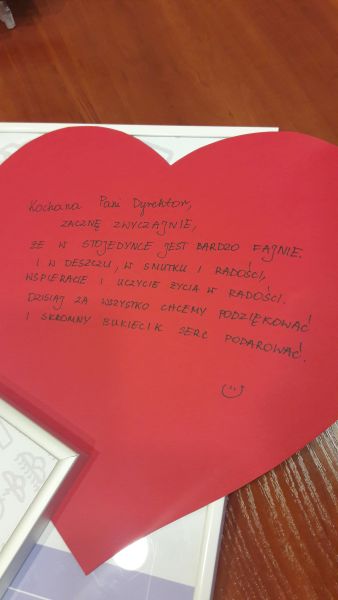 Kochana Pani Dyrektor,
ZACZNĘ ZWYCZAJNIE,
ŻE W STOJEDYNCE JEST BARDZO FAJNIE.
I W DESZCZU, W SMUTKU I RADOŚCI,
WSPIERACIE I UCZYCIE ŻYCIA W RADOŚCI.
DZISIAJ ZA WSZYSTKO CHCEMY PODZIĘKOWAĆ
I SKROMNY BUKIECIK SERC PODAROWAĆ.